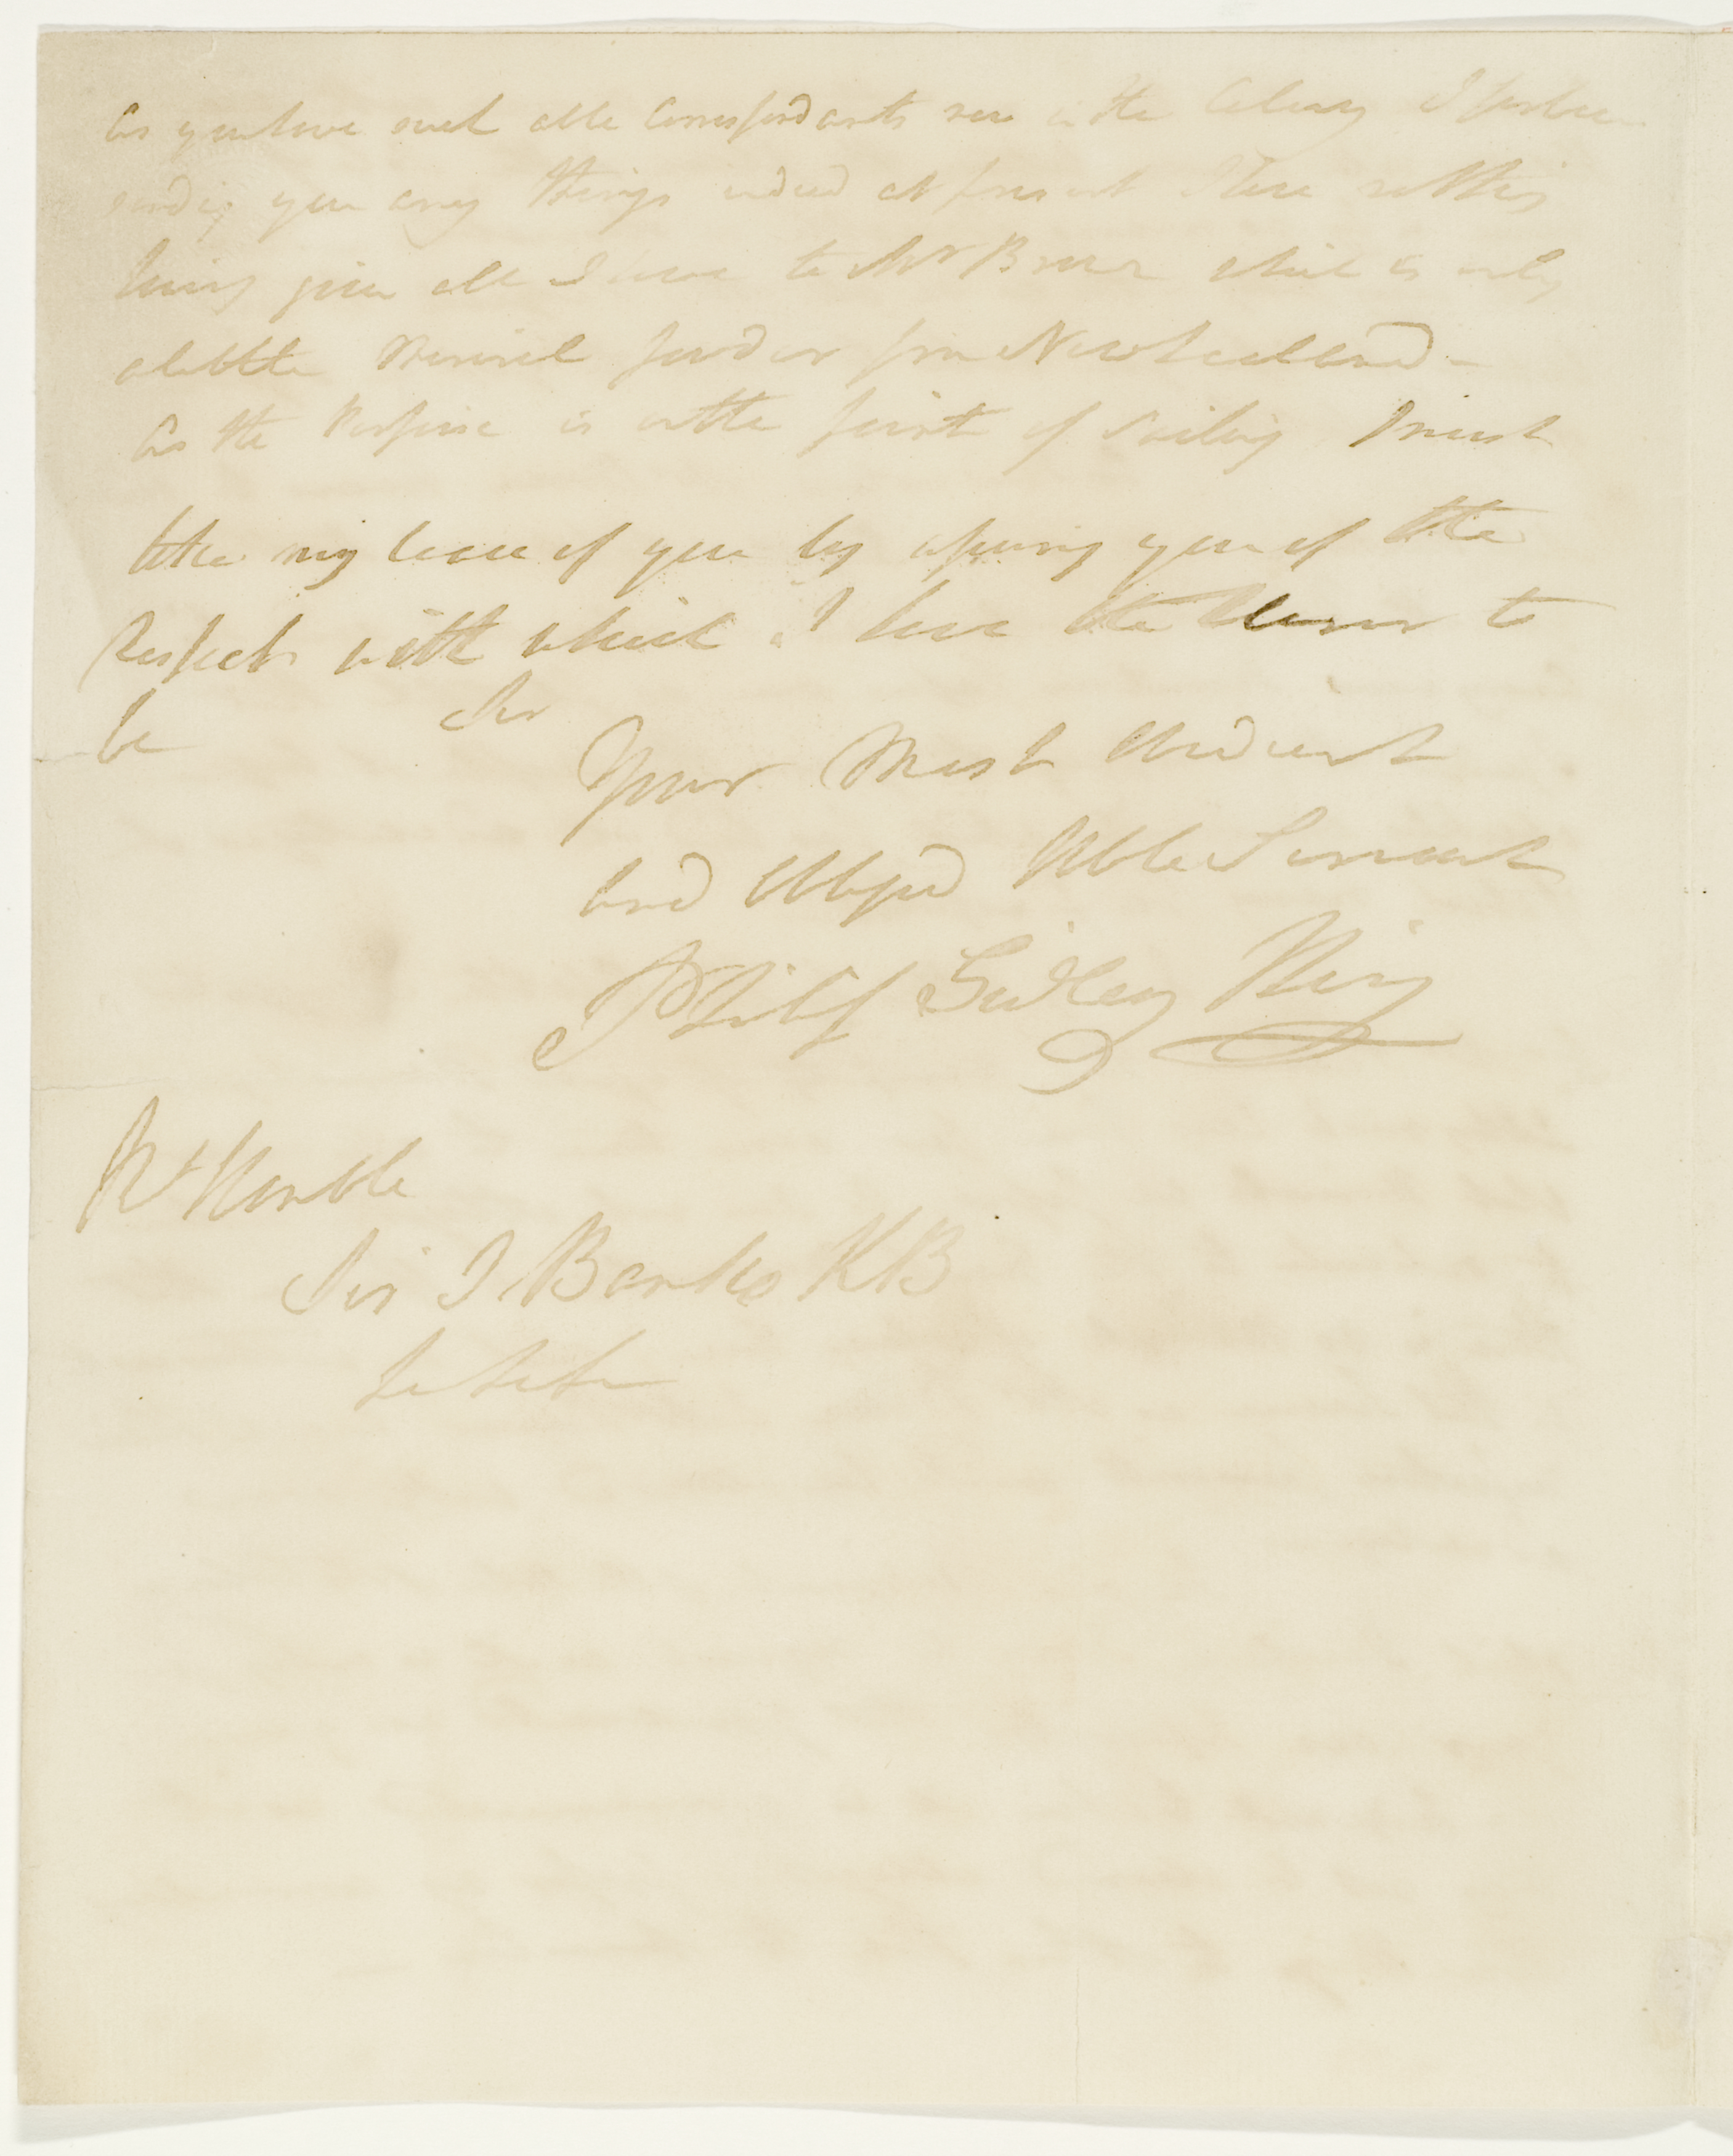 As you have such able Correspondants now in the Colony I forbear
sending you any things indeed at present I have nothing
having given all I have to Mr Brown which is only
a little Mineral powder from New Zealand -
As the Porpoise is on the point of Sailing I must
take my leave of you by assuring you of the
Respect with which I have the Honor to
be Sir
Your Most Obedient
and Obliged Hble Servant
Philip Gidley King
Rt Honble
Sir J Banks KB